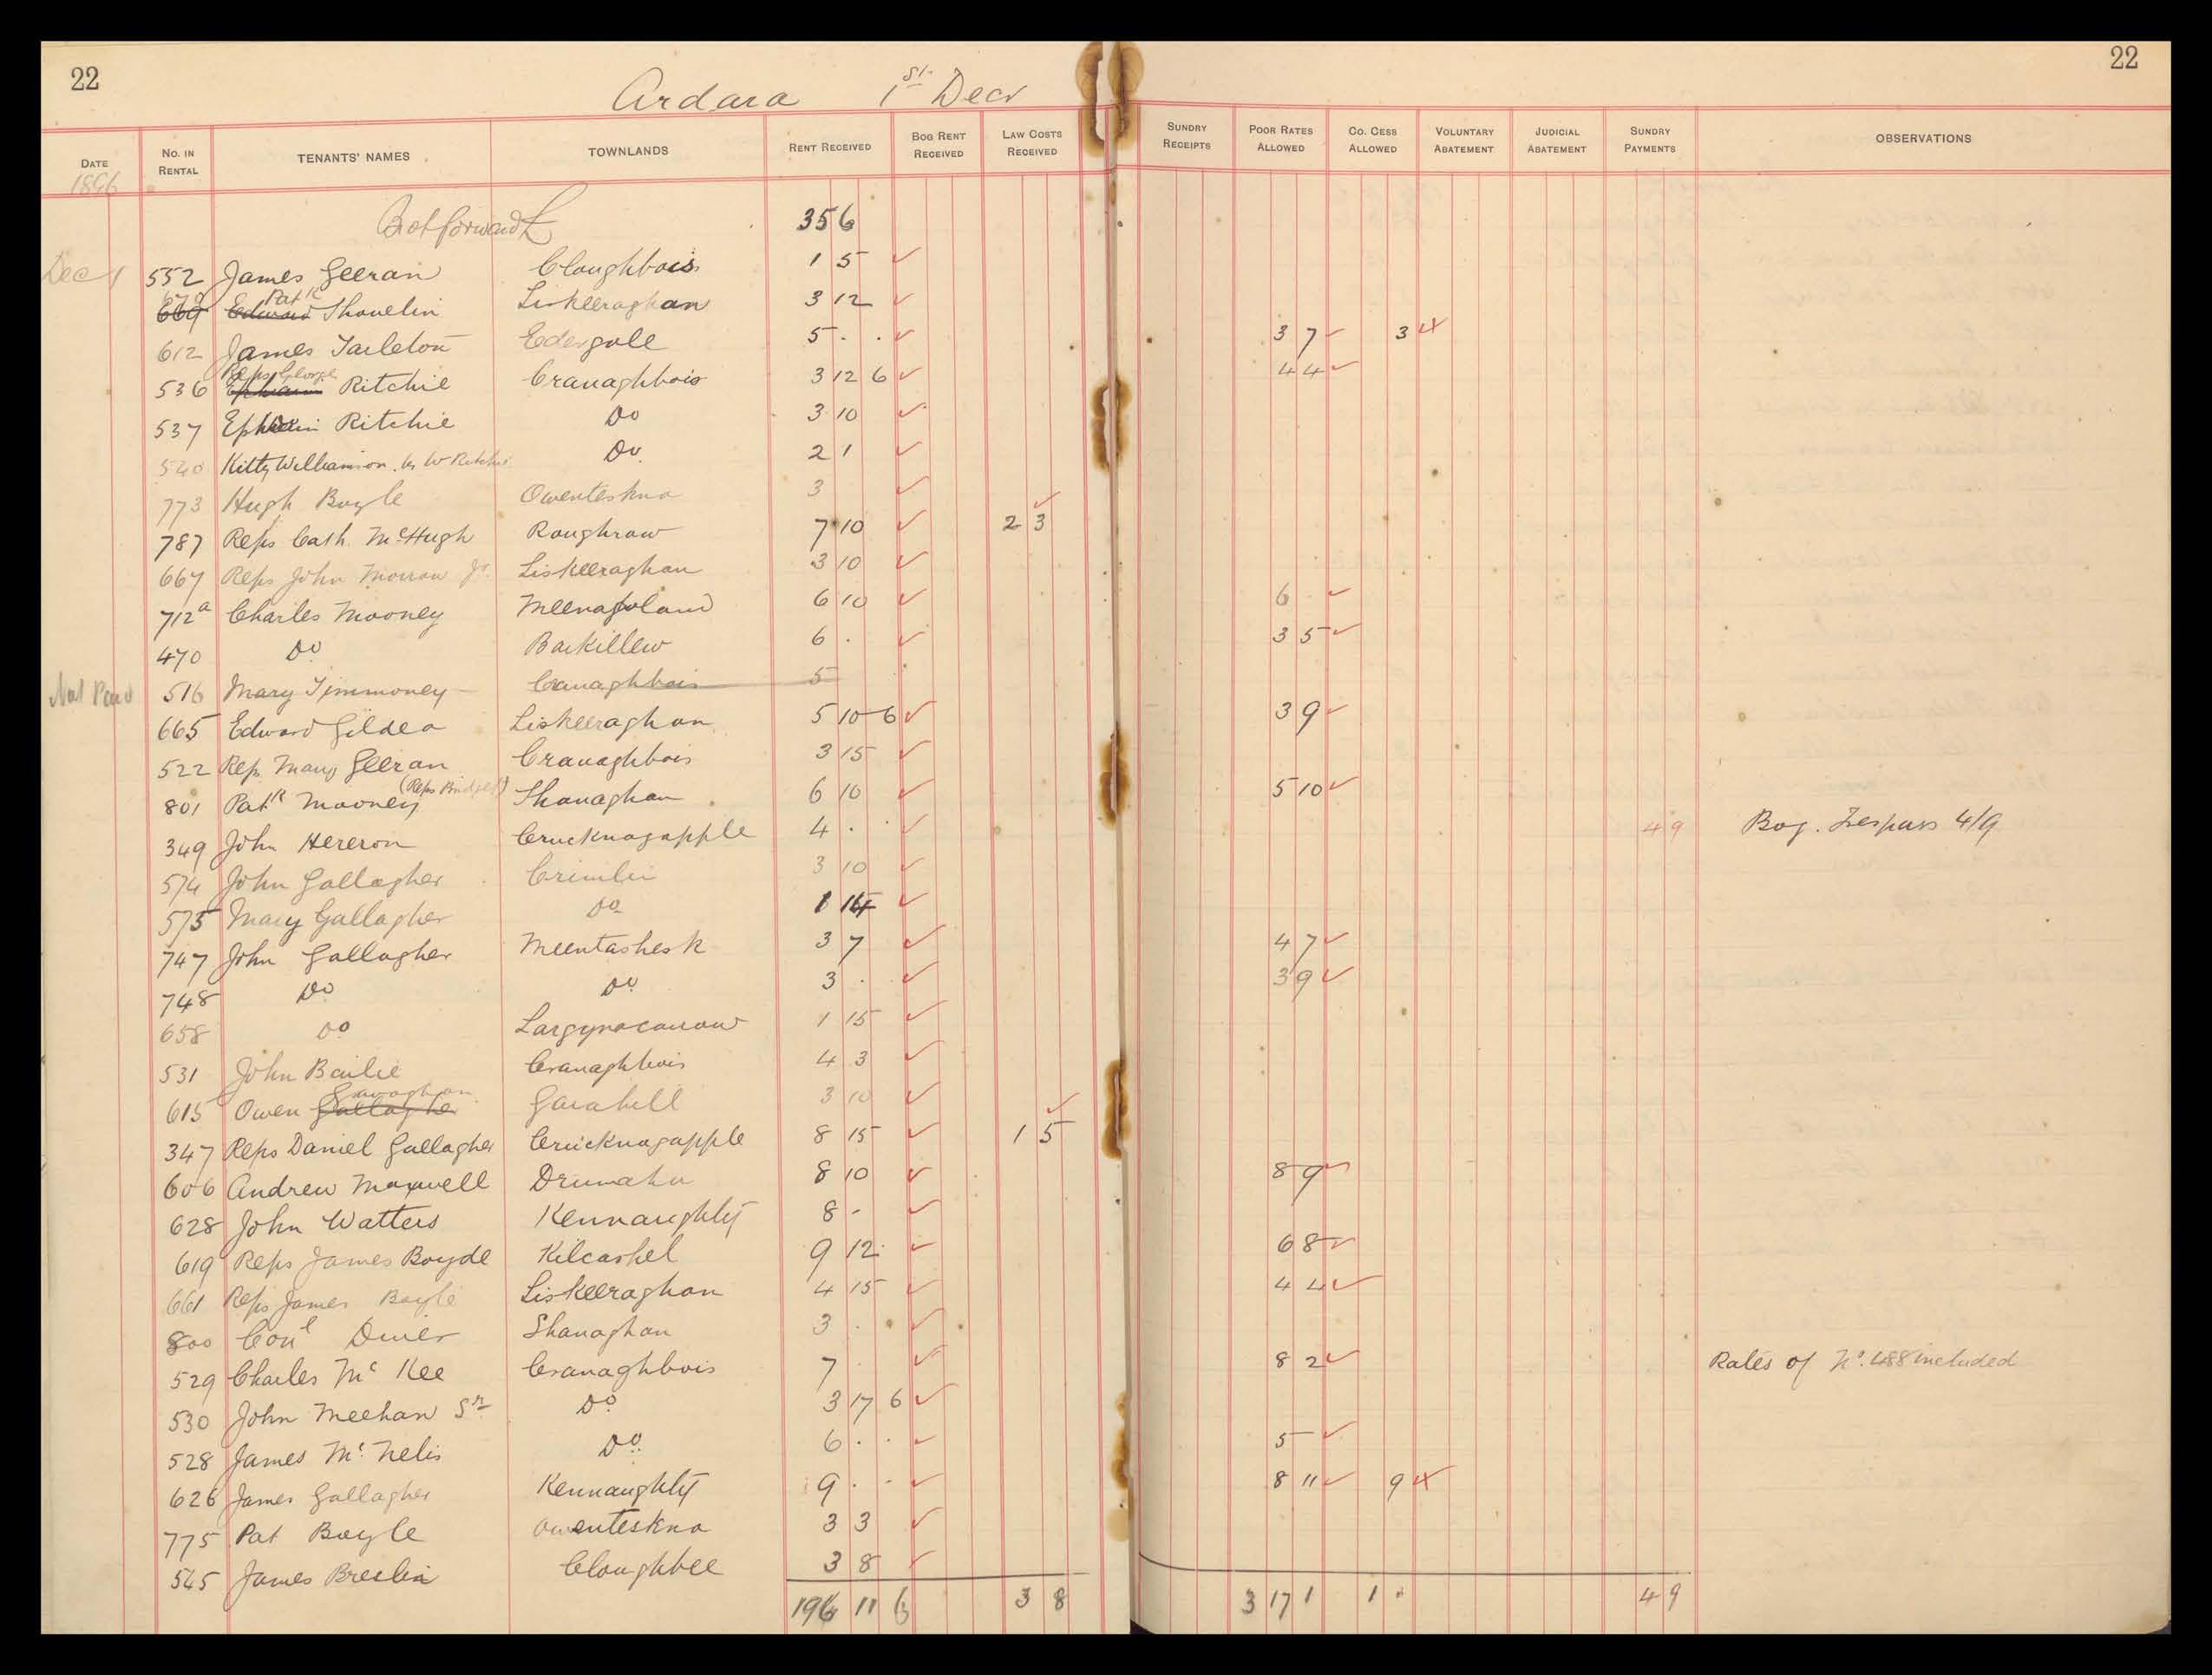 22
22
Ardara 1st Decr
DATE
No. IN RENTAL
TENANTS' NAMES
TOWNLANDS
RENT RECEIVED
BOG RENT RECEIVED
LAW COSTS RECEIVED
SUNDRY RECEIPTS
POOR RATES ALLOWED
CO. CESS ALLOWED
VOLUNTARY ABATEMENT
JUDICIAL ABATEMENT
SUNDRY PAYMENTS
OBSERVATIONS
1896
Brot forward £ 356
Dec 1 552 James Geeran Cloughbois 1 5
670 Patk
669 Edward Shovelin Liskeeraghan 3 12
612 James Tarleton Edergole 5 . . 3 7 3 4
Reps George
536 Ephraim Ritchie Cranaghbois 3 12 6 4 4
537 Ephraim Ritchie Do 3 10
540 Kitty Williamson by W Ritchie Do 2 1
773 Hugh Boyle Owenteskna 3
787 Reps Cath. McHugh Roughraw 7 10 2 3
667 Reps John Morrow Jr Liskeeraghan 3 10
712a Charles Mooney Meenafoland 6 10 6
470 Do Barkillew 6 . 3 5
Not Paid 516 Mary Timmoney Cranaghbois 5
665 Edward Gildea Liskeeraghan 5 10 6 3 9
522 Reps Mary Geeran Cranaghbois 3 15
801 Patk Mooney (Reps Bridget) Shanaghan 6 10 5 10
349 John Hereron Crucknagapple 4 . . 4 9 Bog. Trespass 4/9
574 John Gallagher Crimlin 3 10
575 Mary Gallagher Do 1 14
747 John Gallagher Meentashesk 3 7 4 7
748 Do Do 3 . 3 9
658 Do Largynacarrow 1 15
531 John Bailie Cranaghbois 4 3
Gavaghan
615 Owen Gallagher Garahill 3 10
347 Reps Daniel Gallagher Crucknagapple 8 15 1 5
606 Andrew Maxwell Drumahu 8 10 8 9
628 John Watters Kennaughty 8 -
619 Reps James Boyde Kilcashel 9 12 6 8
661 Reps James Boyle Liskeeraghan 4 15 4 4
800 Conl Diver Shanaghan 3 .
529 Charles McKee Cranaghbois 7 8 2 Rates of No. 488 included
530 John Meehan Sr Do 3 17 6
528 James McNelis Do 6 . . 5
626 James Gallagher Kennaughty 9 . - 8 11 9 4
775 Pat Boyle Owenteskna 3 3
545 James Breslin Cloughbee 3 8
196 11 6 3 8 3 17 1 1 . 4 9